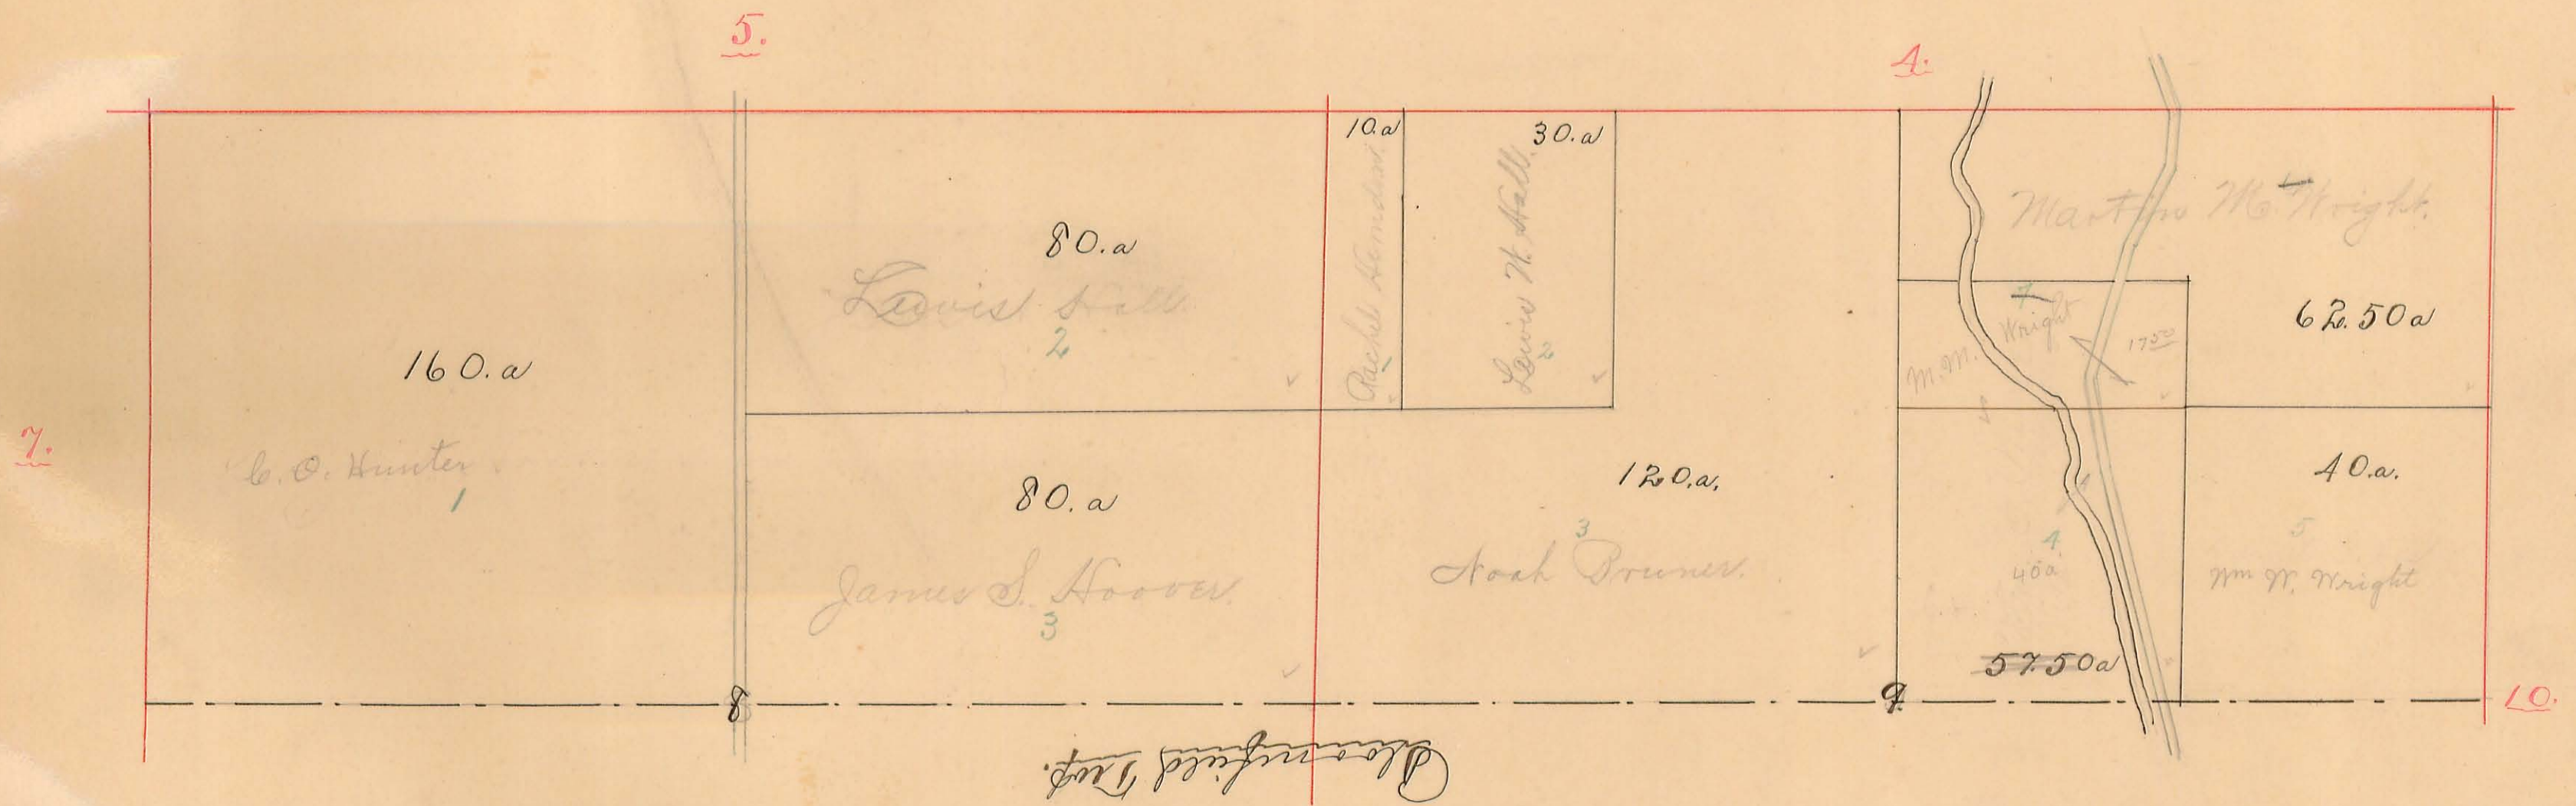 5.
4.
7.
160.a
C. O. Hunter
1
80.a
Lewis Hall
2
80.a
James S. Hoover.
3
10.a
Rachel
30.a
Lewis H. Hall.
2
120.a.
3
Noah Bruner.
Martin M. Wright.
62.50a
7
M. M. Wright
17 50
4
40a
57.50a
40.a.
5
Wm W. Wright
8
9
10.
Bloomfield Twp.